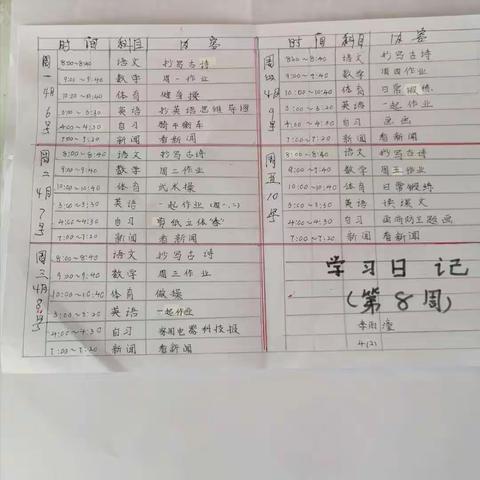 时间 科目 内容
周一 4月6号
8:00~8:40 语文 抄写古诗
9:00~9:40 数学 周一作业
10:00~10:40 体育 健身操
3:00~3:30 英语 抄英语思维导图
4:00~4:30 自习 骑平衡车
7:00~7:20 新闻 看新闻
周二 4月7号
8:00~8:40 语文 抄写古诗
9:00~9:40 数学 周二作业
10:00~10:40 体育 武术操
3:00~3:30 英语 一起作业(周一、二)
4:00~4:30 自习 剪纸立体
7:00~7:20 新闻 看新闻
周三 4月8号
8:00~8:40 语文 抄写古诗
9:00~9:40 数学 周三作业
10:00~10:40 体育 做操
3:00~3:20 英语 一起作业
4:00~4:30 自习 家用电器科技报
7:00~7:20 新闻 看新闻
时间 科目 内容
周四 4月9号
8:00~8:40 语文 抄写古诗
9:00~9:40 数学 周四作业
10:00~10:40 体育 日常锻炼
3:00~3:30 英语 一起作业
4:00~4:30 自习 画画
7:00~7:20 新闻 看新闻
周五 10号
8:00~8:40 语文 抄写古诗
9:00~9:40 数学 周五作业
10:00~10:40 体育 日常锻炼
3:00~3:30 英语 读课文
4:00~4:30 自习 画 主题画
7:00~7:20 新闻 看新闻
学习日记
(第8周)
李雨
4(2)